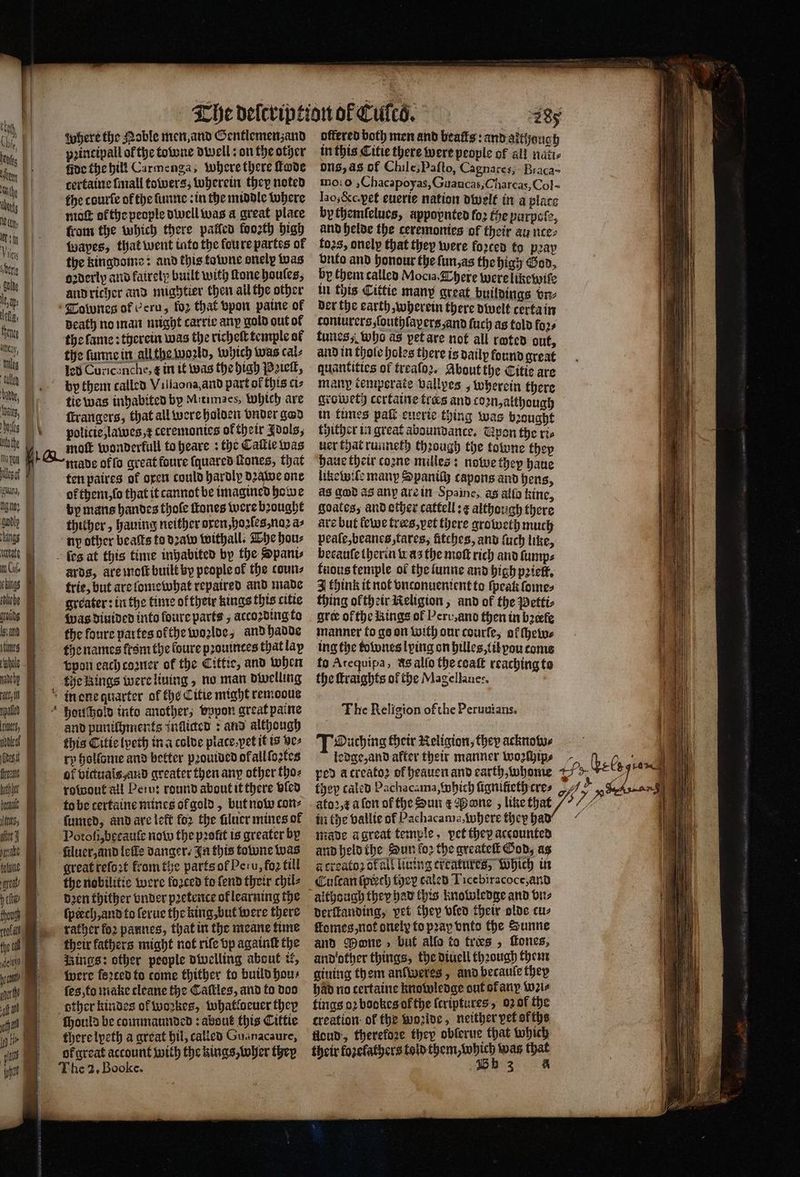 The description of Cusco. 285
where the Noble men, and Gentlemen, and
principall of the towne dwell: on the other
side the hill Carmenga, where there stode
certaine small towers, wherein they noted
the course of the sunne: in the middle where
most of the people dwell was a great place
from the which there passed foorth high
wayes, that went into the foure partes of
the kingdome: and this towne onely was
orderly and fairely built with stone houses,
and richer and mightier then all the other
Townes of Peru, for that vpon paine of
death no man might carrie any gold out of
the same: therein was the richest temple of
the sunne in all the world, which was cal-
led Curicanche, & in it was the high Priest,
by them called Villaona, and part of this ci-
tie was inhabited by Mitimaes, which are
strangers, that all were holden vnder good
policie, lawes, & ceremonies of their Idols,
most wonderfull to heare: the Castle was
made of so great foure squared stones, that
ten paires of oxen could hardly drawe one
of them, so that it cannot be imagined howe
by mans handes those stones were brought
thither, hauing neither oxen, horses, nor a-
ny other beasts to draw withall. The hou-
ses at this time inhabited by the Spani-
ards, are most built by people of the coun-
trie, but are somewhat repaired and made
greater: in the time of their kings this citie
was diuided into foure parts, according to
the foure partes of the worlde, and hadde
the names from the foure prouinces that lay
vpon each corner of the Cittie, and when
the kings were liuing, no man dwelling
in one quarter of the Citie might remooue
houshold into another, vppon great paine
and punishments inflicted: and although
this Citie lyeth in a colde place, yet it is ve-
ry holsome and better prouided of all sortes
of victuals, and greater then any other tho-
rowout all Peru: round about it there vsed
to be certaine mines of gold, but now con-
sumed, and are left for the siluer mines of
Potosi, because now the profit is greater by
siluer, and lesse danger. In this towne was
great resort from the parts of Peru, for till
the nobilitie were forced to send their chil-
dren thither vnder pretence of learning the
speech, and to serue the king, but were there
rather for pawnes, that in the meane time
their fathers might not rise vp against the
Kings: other people dwelling about it,
were forced to come thither to build hou-
ses, to make cleane the Castles, and to doo
other kindes of workes, whatsoeuer they
should be commaunded: about this Cittie
there lyeth a great hil, called Guanacaure,
of great account with the kings, wher they
The 2. Booke.
offered both men and beasts: and although
in this Citie there were people of all nati-
ons, as of Chile, Pasto, Cagnares, Braca-
moro, Chacapoyas, Guancas, Charcas, Col-
lao, &c. yet euerie nation dwelt in a place
by themselues, appoynted for the purpose,
and helde the ceremonies of their aunces-
tors, onely that they were forced to pray
vnto and honour the sun, as the high God,
by them called Mocia. There were likewise
in this Cittie many great buildings vn-
der the earth, wherein there dwelt certain
coniurers, southsayers, and such as told for-
tunes, who as yet are not all rooted out,
and in those holes there is daily found great
quantities of treasor. About the Citie are
many temperate valleyes, wherein there
groweth certaine trees and corn, although
in times past euerie thing was brought
thither in great aboundance. Upon the ri-
uer that runneth through the towne they
haue their corne milles: nowe they haue
likewise many Spanish capons and hens,
as good as any are in Spaine, as also kine,
goates, and other cattell: & although there
are but fewe trees, yet there groweth much
pease, beanes, tares, fitches, and such like,
because therin was the most rich and sump-
tuous temple of the sunne and high priest.
I think it not vnconuenient to speak some-
thing of their Religion, and of the Petti-
gree of the Kings of Peru, and then in breefe
manner to go on with our course, of shew-
ing the townes lying on hilles, til you come
to Arequipa, as also the coast reaching to
the straights of the Magellanes.
The Religion of the Peruuians.
Touching their Religion, they acknow-
ledge, and after their manner worship-
ped a creator of heauen and earth, whome
they caled Pachacama, which signifieth cre-
ator, & a son of the Sun & Moone, like that
in the vallie of Pachacama, where they had
made a great temple, yet they accounted
and held the Sun for the greatest God, as
a creator of all liuing creatures, which in
Cuscan speech they caled Ticebiracoce, and
although they had this knowledge and vn-
derstanding, yet they vsed their olde cu-
stomes, not onely to pray vnto the Sunne
and Moone, but also to trees, stones,
and other things, the diuell through them
giuing them answeres, and because they
had no certaine knowledge out of any wri-
tings or bookes of the scriptures, or of the
creation of the worlde, neither yet of the
floud, therefore they obserue that which
their forefathers told them, which was that
Bb 3 a